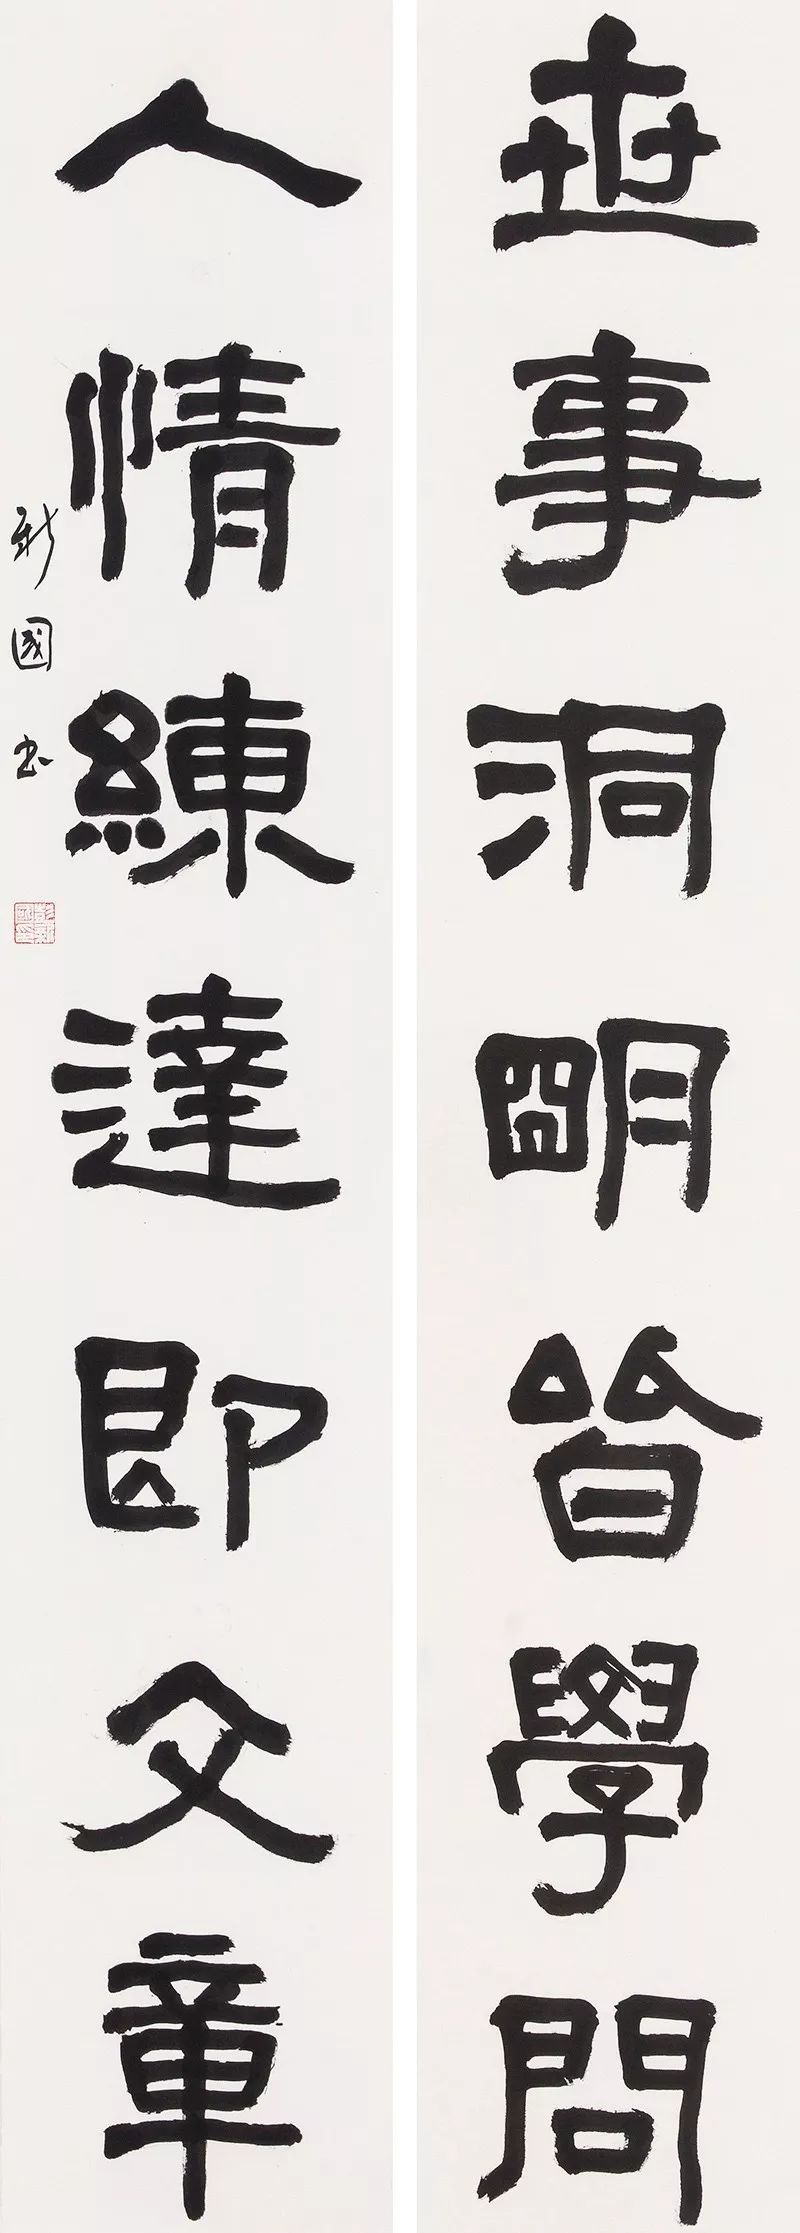 世事洞明皆學問
人情練達即文章
新國书